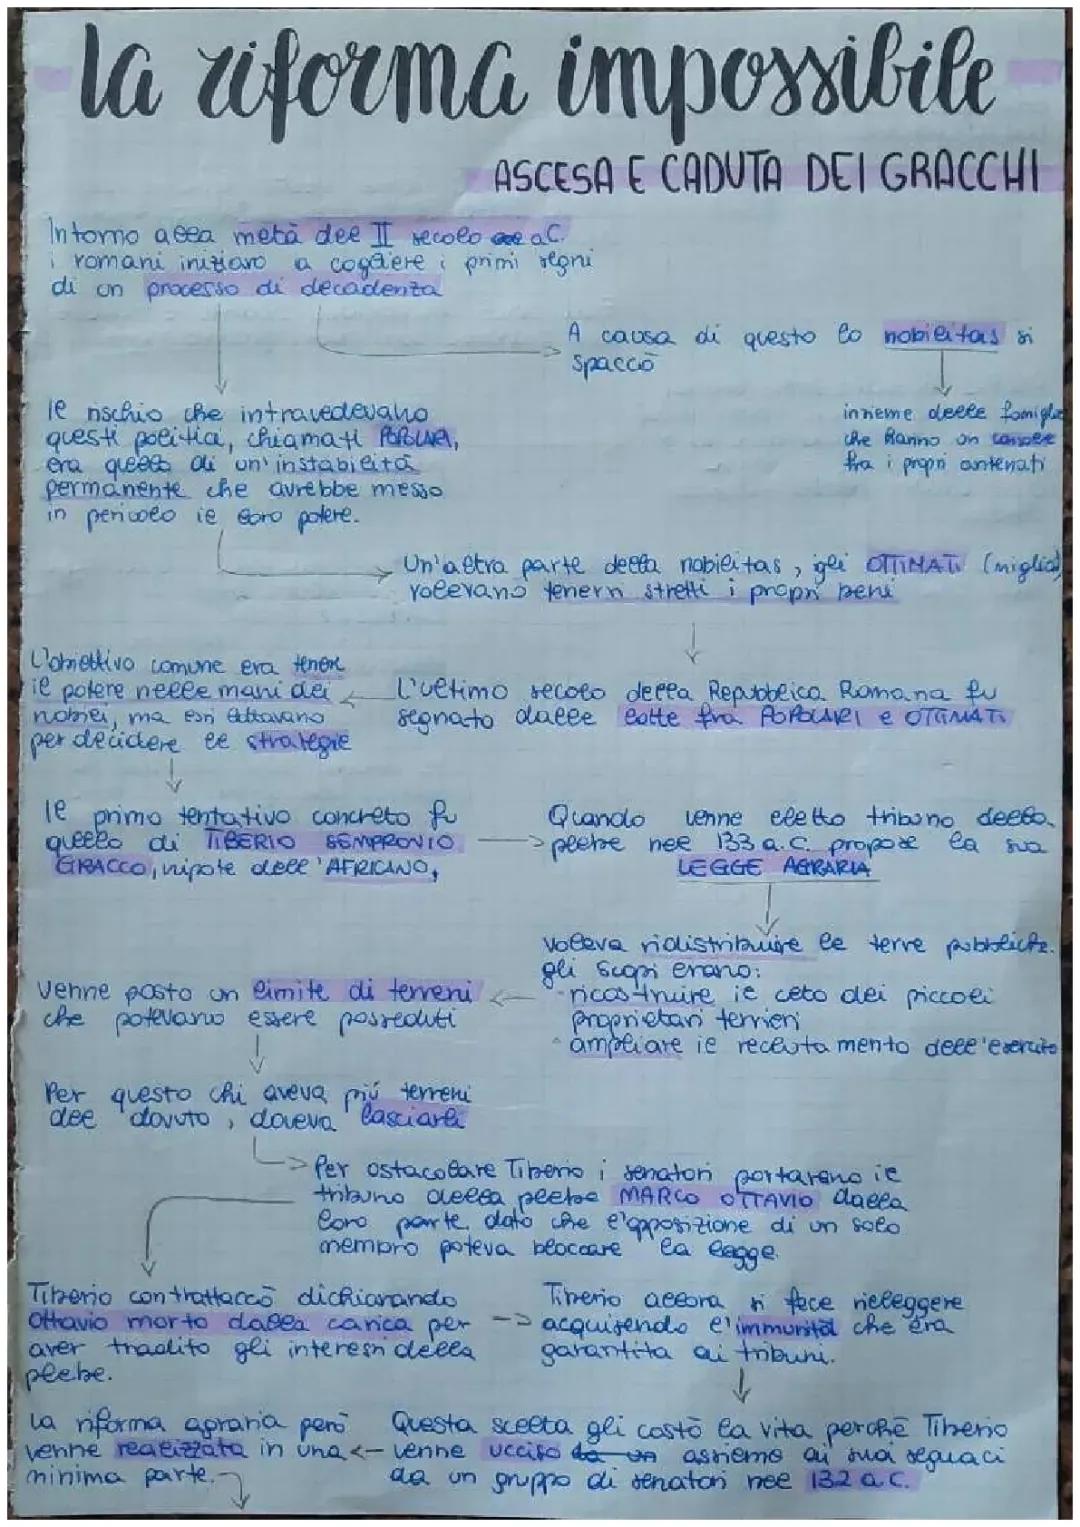 la riforma impossibile
ASCESA E CADUTA DEI GRACCHI
Intorno alla metà del II secolo a.C.
i romani iniziaro a cogliere i primi segni
di un processo di decadenza
A causa di questo la nobilitas si
spaccò
insieme delle famiglie
che hanno un console
fra i propri antenati
Il rischio che intravedevano
questi politici, chiamati POPOLARI,
era quello di un'instabilità
permanente che avrebbe messo
in pericolo il loro potere.
Un'altra parte della nobilitas, gli OTTIMATI (migliori)
volevano tenersi stretti i propri beni
L'obiettivo comune era tenere
il potere nelle mani dei
nobili, ma essi lottavano
per decidere le strategie
L'ultimo secolo della Repubblica Romana fu
segnato dalle lotte fra POPOLARI e OTTIMATI
Il primo tentativo concreto fu
quello di TIBERIO SEMPRONIO
GRACCO, nipote dell'AFRICANO,
Quando venne eletto tribuno della
plebe nel 133 a.C. propose la sua
LEGGE AGRARIA
Voleva ridistribuire le terre pubbliche.
gli scopi erano:
- ricostruire il ceto dei piccoli
proprietari terrieri
- ampliare il reclutamento dell'esercito
Venne posto un limite di terreni
che potevano essere posseduti
Per questo chi aveva più terreni
del dovuto, doveva lasciarli
Per ostacolare Tiberio i senatori portarono il
tribuno della plebe MARCO OTTAVIO dalla
loro parte, dato che l'opposizione di un solo
membro poteva bloccare la legge.
Tiberio contrattaccò dichiarando
Ottavio morto dalla carica per
aver tradito gli interessi della
plebe.
Tiberio allora si fece rieleggere
acquisendo l'immunità che era
garantita ai tribuni.
Questa scelta gli costò la vita perché Tiberio
venne ucciso da un assieme ai suoi seguaci
da un gruppo di senatori nel 132 a.C.
La riforma agraria però
venne realizzata in una
minima parte.